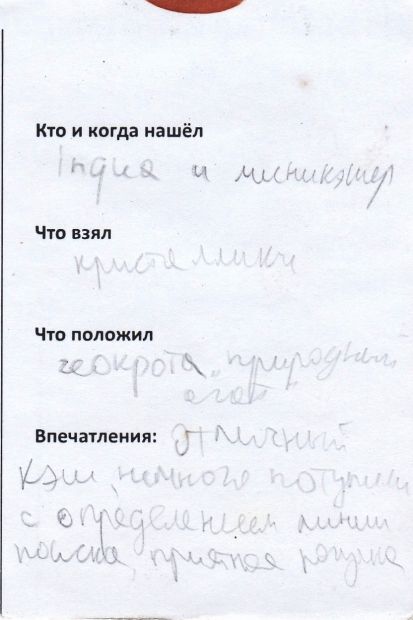 Кто и когда нашёл
India и миникэшер
Что взял
кристаллики
Что положил
геокрота „природный
агат"
Впечатления: Отличный
кэш, немного потупили
с определением линии
поиска, приятная